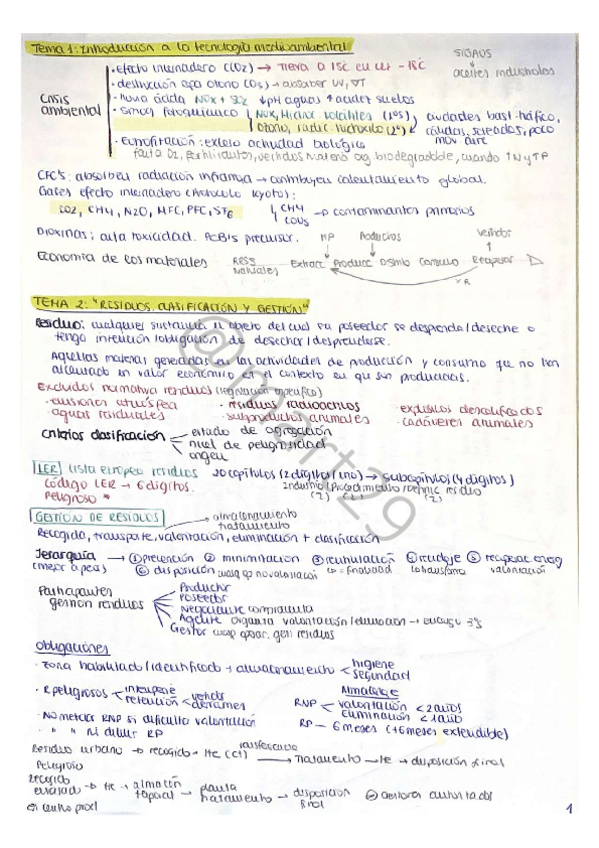 Tema 1: Introducción a la tecnología medioambiental
SIGAUS
↓
aceites industriales
Crisis ambiental
· efecto invernadero (CO2) → Tierra a 15C en vez -18C
· destrucción capa ozono (O3) → absorber UV, ∇T
· lluvia ácida NOx + SO2 ↓pH aguas ↑ acidez suelos
· Smog fotoquímico NOx, Hidroc volátiles (1os) ciudades bast tráfico,
Ozono, radic hidroxilo (2os) cálidas, soleadas, poco mov aire
· Eutrofización: exceso actividad biológica
falta O2, fertilizantes, vertidos materia org. biodegradable, cuando ↑N y ↑P
CFC's: absorben radiación infrarroja → contribuyen calentamiento global.
Gases efecto invernadero (Protocolo Kyoto):
CO2, CH4, N2O, HFC, PFC, SF6
CH4
COVs → contaminantes primarios
Dioxinas: alta toxicidad. PCB's precursor.
MP Productos vertedor
Economía de los materiales Ress naturales Extracc Producc Distrib Consumo Residuos
VR
TEMA 2: "RESIDUOS. CLASIFICACIÓN Y GESTIÓN"
Residuo: cualquier sustancia u objeto del cual su poseedor se desprenda/deseche o
tenga intención/obligación de desechar/desprenderse.
Aquellas materias generadas en las actividades de producción y consumo que no han
alcanzado un valor económico en el contexto en que son producidas.
Excluidos normativa residuos (legislación específica)
· emisiones atmósfera · residuos radioactivos · explosivos desclasificados
· aguas residuales · subproductos animales · cadáveres animales
Criterios clasificación
estado de agregación
nivel de peligrosidad
origen
LER lista europea residuos 20 capítulos (2 dígitos) (uno) → subcapítulos (4 dígitos)
código LER → 6 dígitos. industria/procedimiento/ residuo
Peligroso * (2) (2) (2)
GESTIÓN DE RESIDUOS
almacenamiento
tratamiento
Recogida, transporte, valorización, eliminación + clasificación
Jerarquía → ① prevención ② minimización ③ reutilización ④ reciclaje ⑤ recuperac energ
(mejor a peor) ⑥ disposición cuando no valorización = finalidad lo transforma valorización
Participantes gestión residuos
Productor
Poseedor
Negociante compra/venta
Agente organiza valorización/eliminación
Gestor cualq operac. gest residuos
Obligaciones
· Zona habilitada/identificada → almacenamiento higiene
seguridad
· R peligrosos intemperie vertidos
retención derrames
Almacenaje
RNP valorización < 2 años
eliminación < 1 año
RP → 6 meses (+6 meses extendible)
· No mezclar RNP si dificulta valorización
· " " ni diluir RP
Residuo urbano → recogida → tte (CT) transferencia → tratamiento → tte → disposición final
Peligroso
Recogido envasado → tte → almacén temporal → planta tratamiento → disposición final Gestora autorizados
en centro prod
1